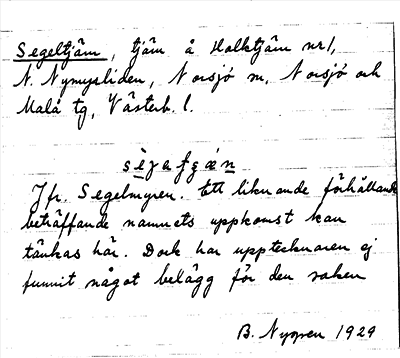 Segeltjärn, tjärn å Holktjärn nr 1,
N. Nymyrliden, Norsjö sn, Norsjö och
Malå tg, Västerb. l.
Jfr. Segelmyren. Ett liknande förhållande
beträffande namnets uppkomst kan
tänkas här. Dock har upptecknaren ej
funnit något belägg för den saken
B. Nygren 1929